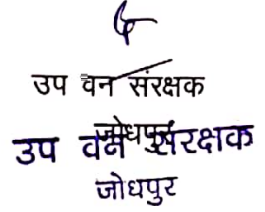 उप वन संरक्षक
जोधपुर
उप वन संरक्षक
जोधपुर